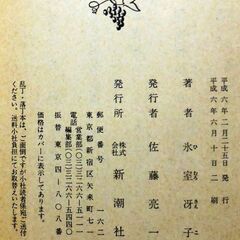 平成六年二月二十五日発行
平成六年六月十日二刷
著者 氷室冴子
発行者 佐藤亮一
発行所 株式会社 新潮社
郵便番号 一六二
東京都新宿区矢来町七一
電話 営業部(〇三)三二六六-五一一一
編集部(〇三)三二六六-五四四〇
振替 東京四-八〇八
価格はカバーに表示してあります。
乱丁・落丁本は、ご面倒ですが小社読者係宛ご送付
ください。送料小社負担にてお取替えいたします。